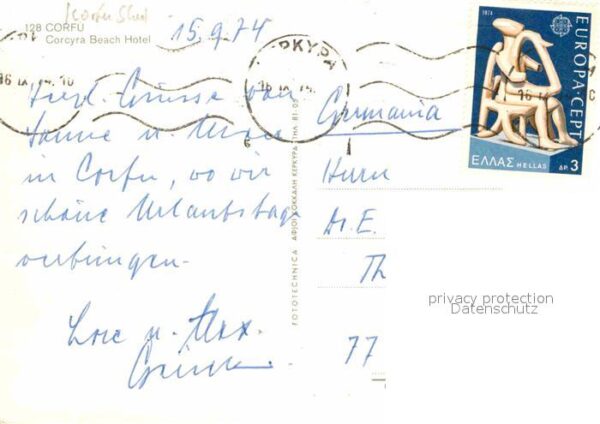 Korfu Stadt
128 CORFU
Corcyra Beach Hotel
15.9.74
ΚΕΡΚΥΡΑ
16 IX 74.10
16 IX 74
Herzl. Grüsse von
Sonne u. Meer
in Corfu, wo wir
schöne Urlaubstage
verbringen.
Lore u. Max
FOTOTECHNICA ΑΦΟΙ ΚΟΚΚΑΛΗ ΚΕΡΚΥΡΑ ΤΗΛ 81-05
Germania
Herrn
Dr. E.
Th
77
1974
EUROPA·CEPT
ΕΛΛΑΣ HELLAS ΔΡ 3
privacy protection
Datenschutz